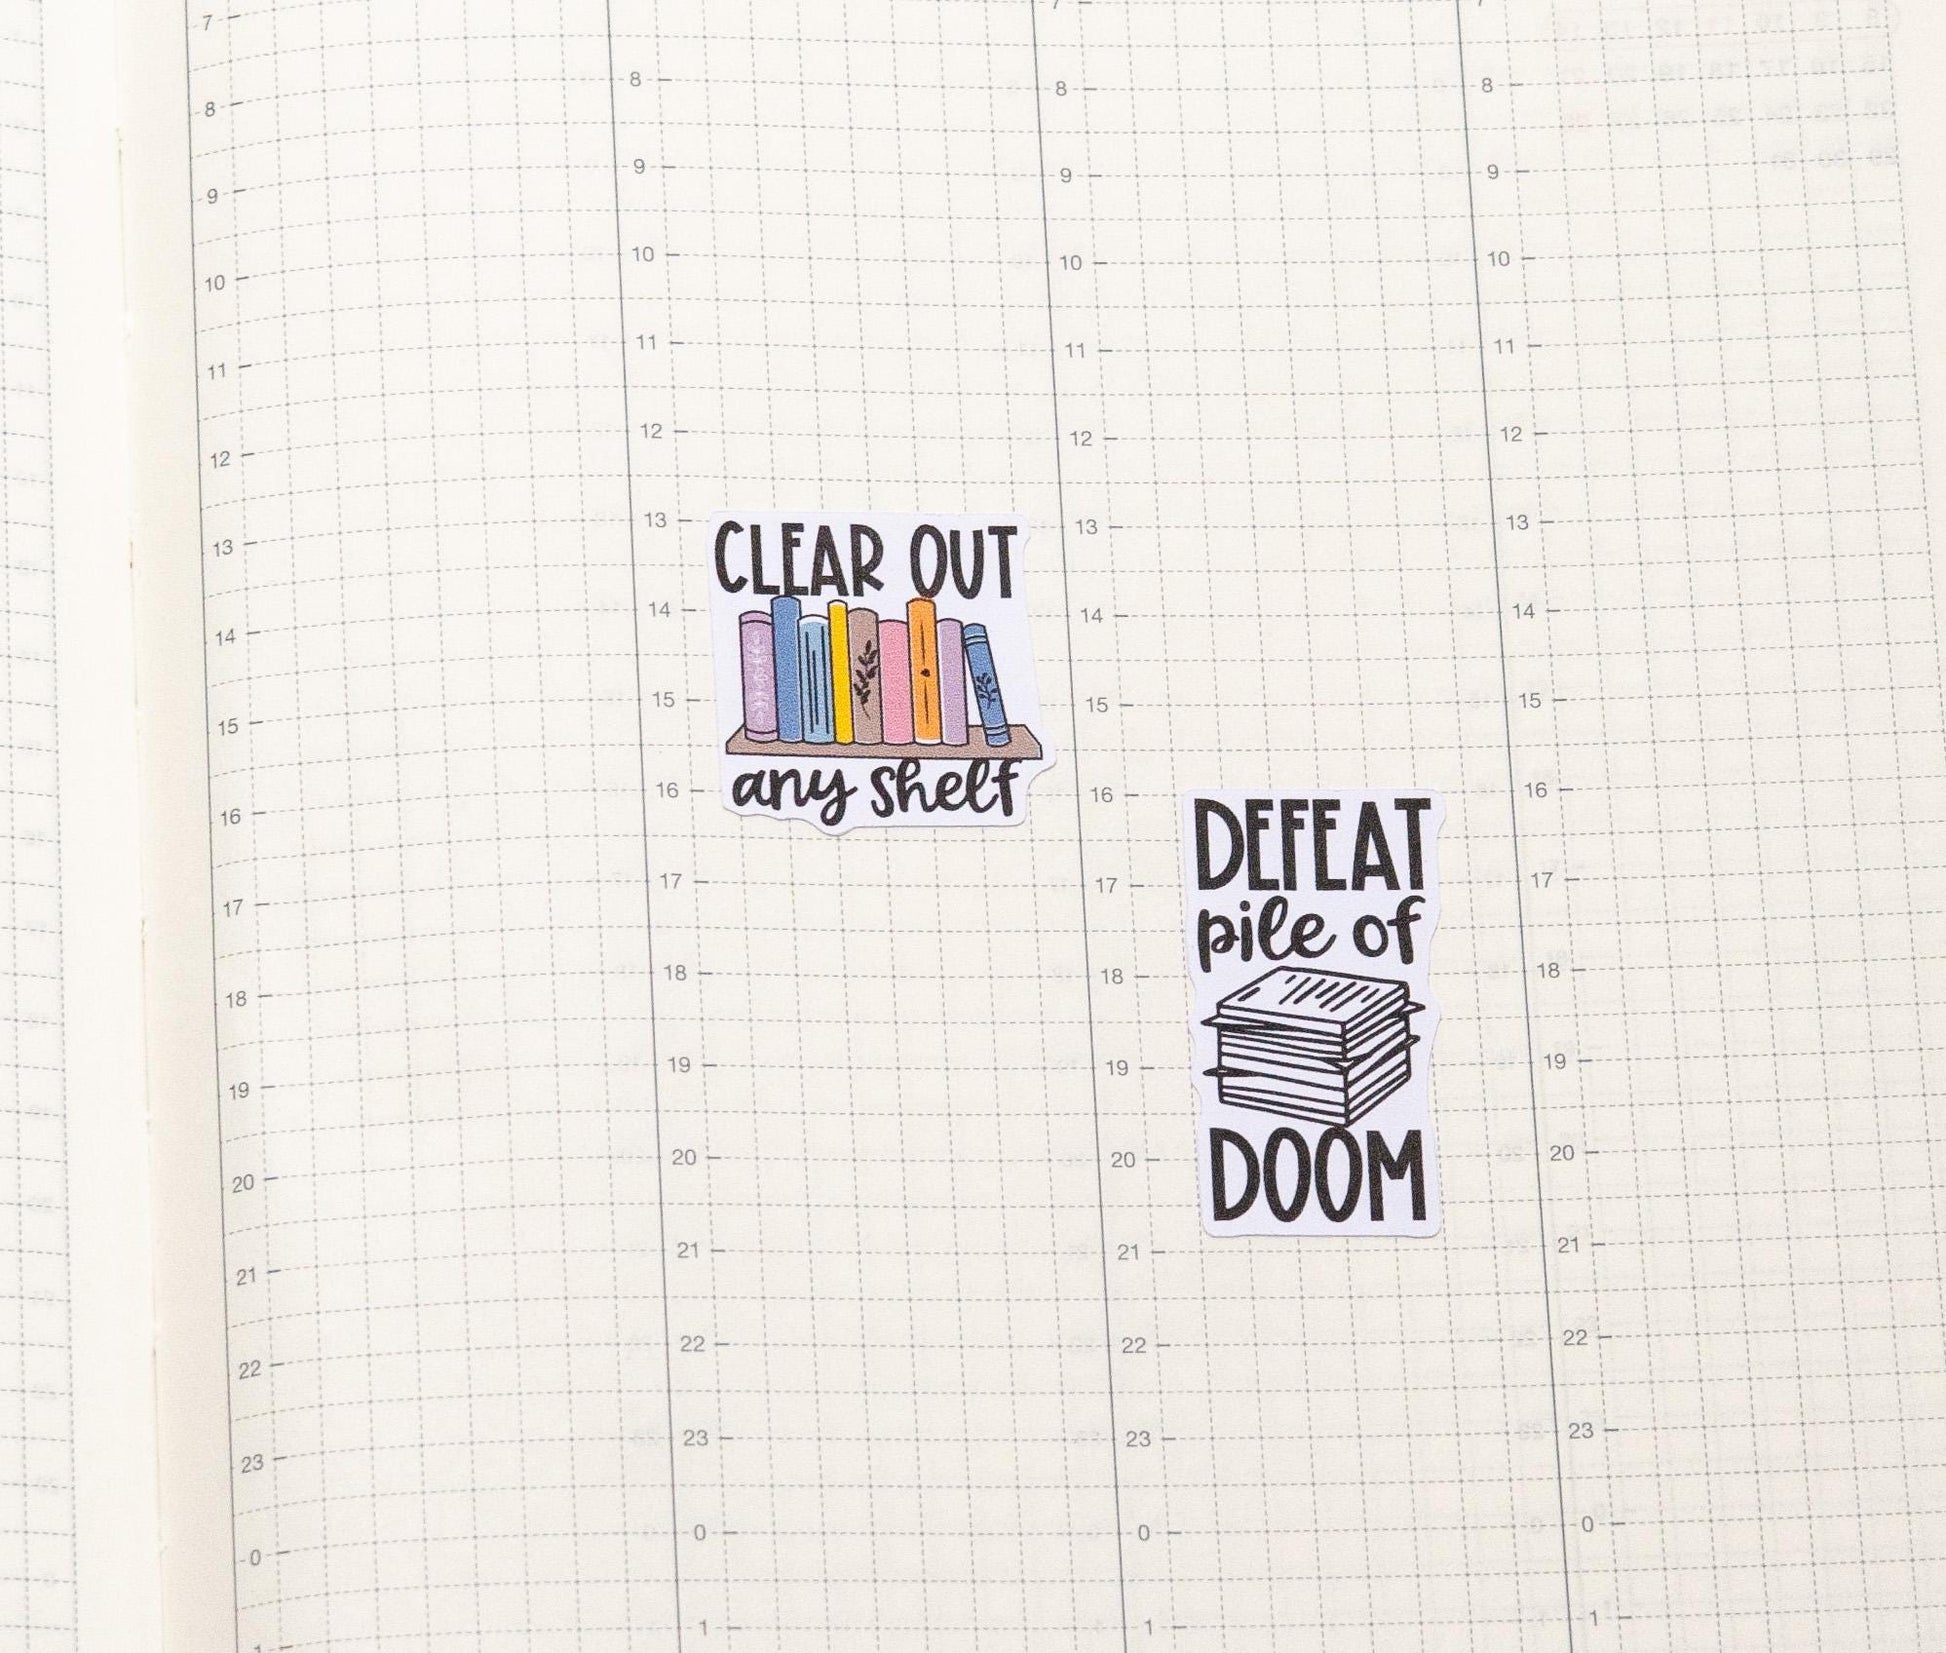 7
8
9
10
11
12
13
14
15
16
17
18
19
20
21
22
23
0
1
8
9
10
11
12
13
14
15
16
17
18
19
20
21
22
23
0
1
CLEAR OUT
any shelf
7
8
9
10
11
12
13
14
15
16
17
18
19
20
21
22
23
0
1
DEFEAT
pile of
DOOM
7
8
9
10
11
12
13
14
15
16
17
18
19
20
21
22
23
0
1